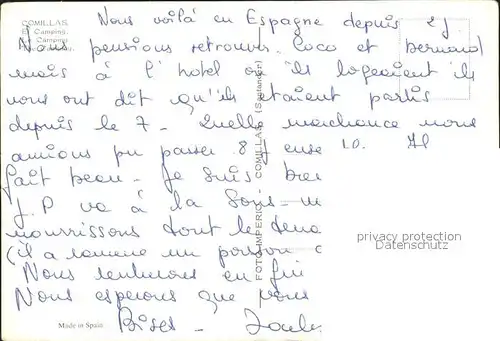 COMILLAS
El Camping.
Le Camping.
Nous voilà en Espagne depuis 2 J
Nous pensions retrouver Coco et Bernard
mais à l'hotel où ils logeaient ils
nous ont dit qu'ils etaient partis
depuis le 7 - Quelle malchance nous
aurions pu passer 8 J ense 10. Il
fait beau - Je suis
J.P va à la
nourrissons dont le
(il a ramené un poisson
Nous rentrerons en
Nous esperons que vous
Bises -
FOTO IMPERIO - COMILLAS (Santander)
privacy protection
Datenschutz
Made in Spain